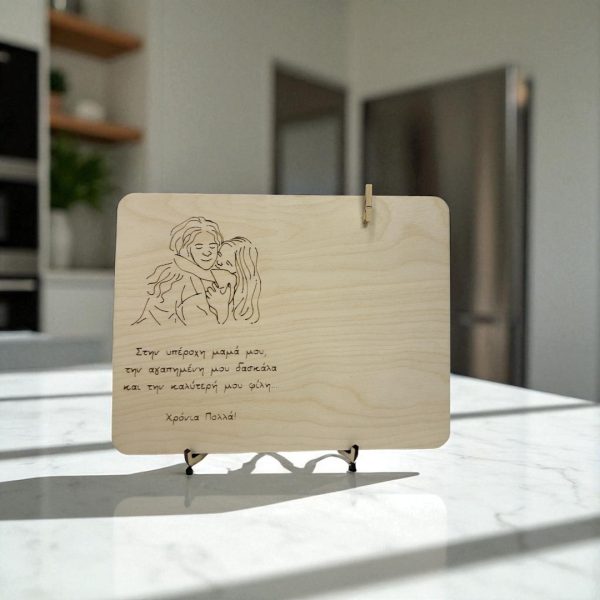 Στην υπέροχη μαμά μου,
την αγαπημένη μου δασκάλα
και την καλύτερή μου φίλη...
Χρόνια Πολλά!